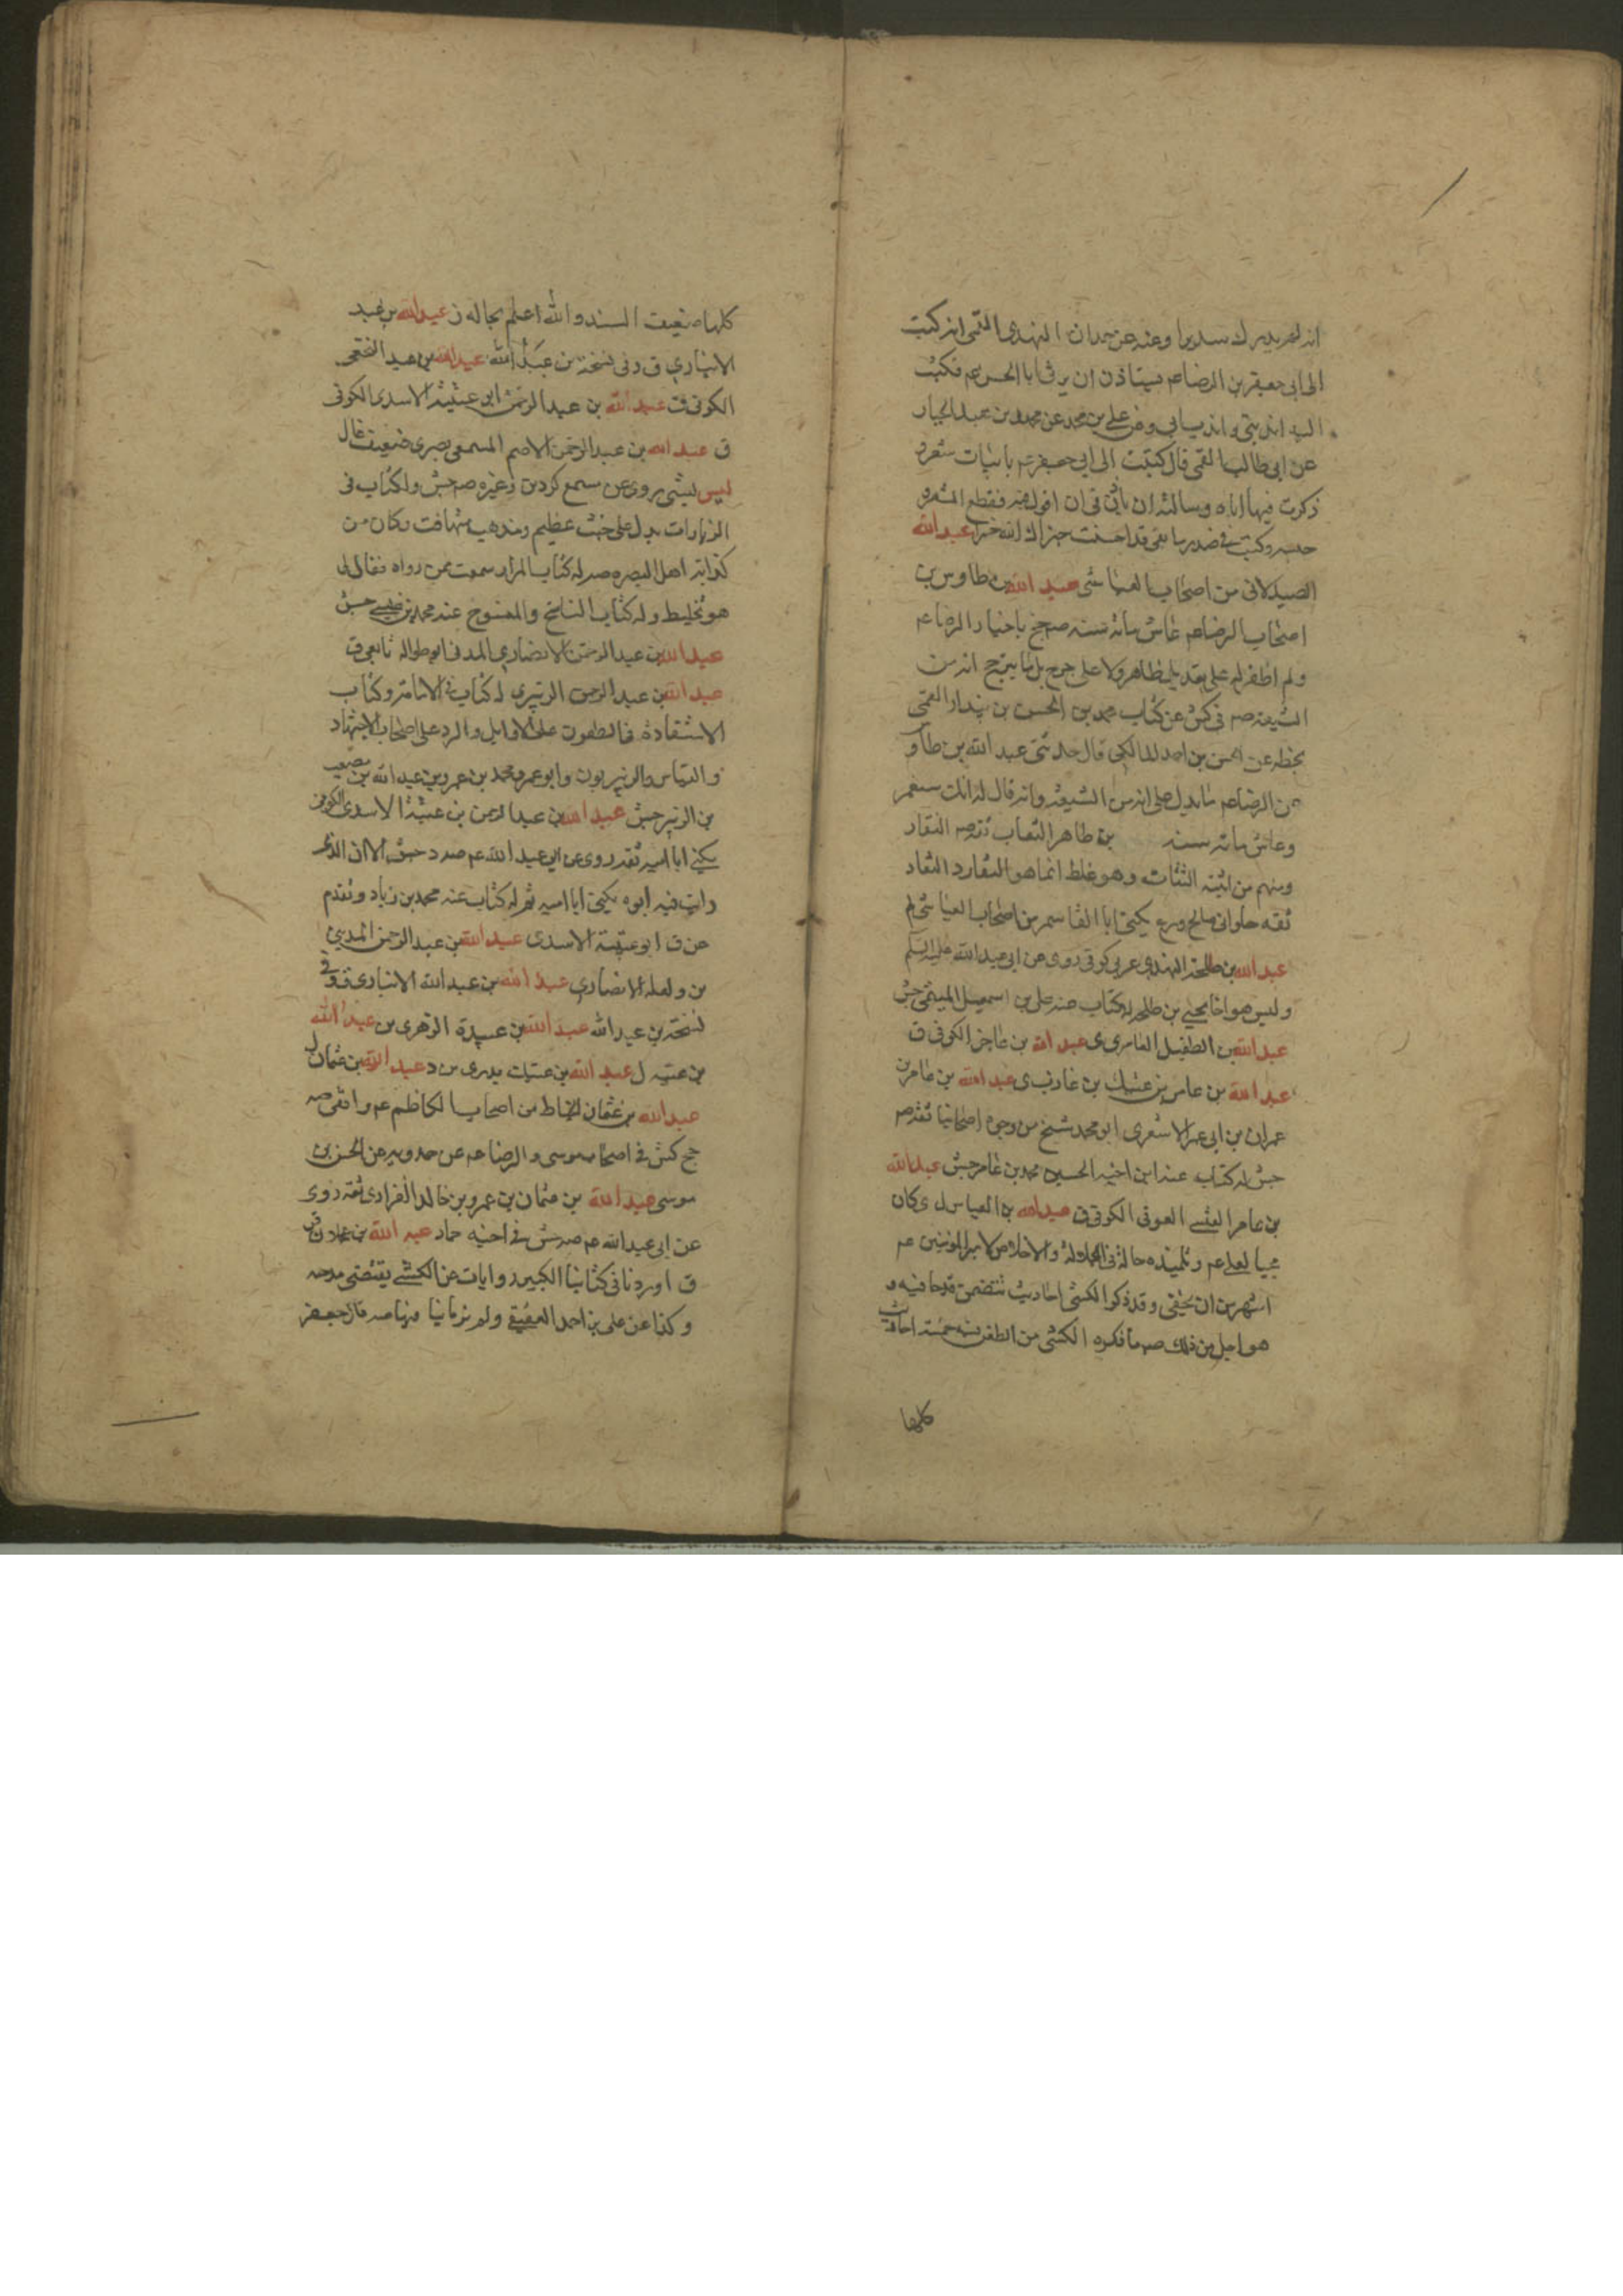 انه لم يدرك سديرا وعنه عن حمدان النهدي القمي انه كتب
الى ابي جعفر بن الرضا عم يستاذن ان يرثي ابا الحسن عم فكتب
اليه اندبني واندب ابي وعن علي بن محمد عن محمد بن عبد الجبار
عن ابي طالب القمي قال كتبت الى ابي جعفر عم بابيات شعر و
ذكرت فيها اباه وسالته ان ياذن في ان اقول فيه فقطع الشعر و
حبسه وكتب في صدر ما بقي قد احسنت جزاك الله خيرا عبد الله
الصيدلاني من اصحاب العياشي عبد الله بن طاوس من
اصحاب الرضا عم عاش مائة سنة صه جخ باختيار الرضا عم
ولم اظفر له على تعديل ظاهر ولا على جرح بل ما يترجح انه من
الشيعة صه في كش عن كتاب محمد بن الحسن بن بندار القمي
بخطه عن الحسن بن احمد المالكي قال حدثني عبد الله بن طاو
عن الرضا عم ما يدل على انه من الشيعة وانه قال له انك ستعمر
وعاش مائة سنة بن طاهر النقاب ثقة صه النقار
ومنهم من اثبته الثقات وهو غلط انما هو النقار د النقاد
ثقة حلواني صالح ورع يكنى ابا القاسم من اصحاب العياشي لم
عبد الله بن طلحة النهدي عربي كوفي روى عن ابي عبد الله عليه السلم
وليس هو اخا يحيى بن طلحة له كتاب عنه علي بن اسمعيل الميثمي جش
عبد الله بن الطفيل العامري ى عبد الله بن عاجز الكوفي ق
عبد الله بن عامر بن عتيك بن عازب ى عبد الله بن عامر بن
عمران بن ابي عمر الاشعري ابو محمد شيخ من وجوه اصحابنا ثقة صه
جش له كتاب عنه ابن اخيه الحسين محمد بن عامر جش عبد الله
بن عامر العوفي الكوفي ق عبد الله بن العباس ل ى كان
محبا لعلي عم وتلميذه حاله في الجلالة والاخلاص لامير المومنين عم
اشهر من ان يخفى وقد ذكر الكشي احاديث تتضمن قدحا فيه و
هو اجل من ذلك صه ما ذكره الكشي من الطعن فيه خمسة احاديث
كلها
كلها ضعيف السند والله اعلم بحاله عبد الله بن عبد
الانباري ق وفي نسخة بن عبد الله عبد الله بن عبد النخعي
الكوفي ق عبد الله بن عبد الرحمن ابي عتيبة الاسدي الكوفي
ق عبد الله بن عبد الرحمن الاصم المسمعي بصري ضعيف غال
ليس بشي يروي عن مسمع كردين وغيره صه جش وله كتاب في
الزيارات يدل على خبث عظيم ومذهب متهافت وكان من
كذابة اهل البصرة صه له كتاب المزار سمعت ممن رواه فقال لي
هو تخليط وله كتاب الناسخ والمنسوخ عنه محمد بن عيسى جش
عبد الله بن عبد الرحمن الانصاري المدني ابو طوالة تابعي ق
عبد الله بن عبد الرحمن الزبيري له كتاب في الامامة وكتاب
الاستفادة في الطعون على الاوايل والرد على اصحاب الاجتهاد
والقياس والزبيريون وابو عمر ومحمد بن عمرو بن عبد الله بن مصعب
بن الزبير جش عبد الله بن عبد الرحمن بن عتيبة الاسدي الكوفي
يكنى ابا امية ثقة روى عن ابي عبد الله عم صه د جش الا ان الذي
رايت فيه ابوه يكنى ابا امية ثم له كتاب عنه محمد بن زياد وتقدم
عن ق ابو عتيبة الاسدي عبد الله بن عبد الرحمن المديني
بن ولعله الانصاري عبد الله بن عبد الله الانباري ق وفي
نسخة بن عبد الله عبد الله بن عبيدة الزهري بن عبد الله
بن عتبة ل عبد الله بن عتيك بدري ل د عبد الله بن عثمان ل
عبد الله بن عثمان الخياط من اصحاب الكاظم عم واقفي صه
جخ كش في اصحاب موسى والرضا عم عن حمدويه عن الحسن بن
موسى عبد الله بن عثمان بن عمرو بن خالد الفزاري ثقة روى
عن ابي عبد الله عم صه جش في اخيه حماد عبد الله بن عجلان ق
ق اوردنا في كتابنا الكبير روايات عن الكشي يقتضي مدحه
وكذا عن علي بن احمد العقيقي ولم نرها نيا منها صه قال جعفر